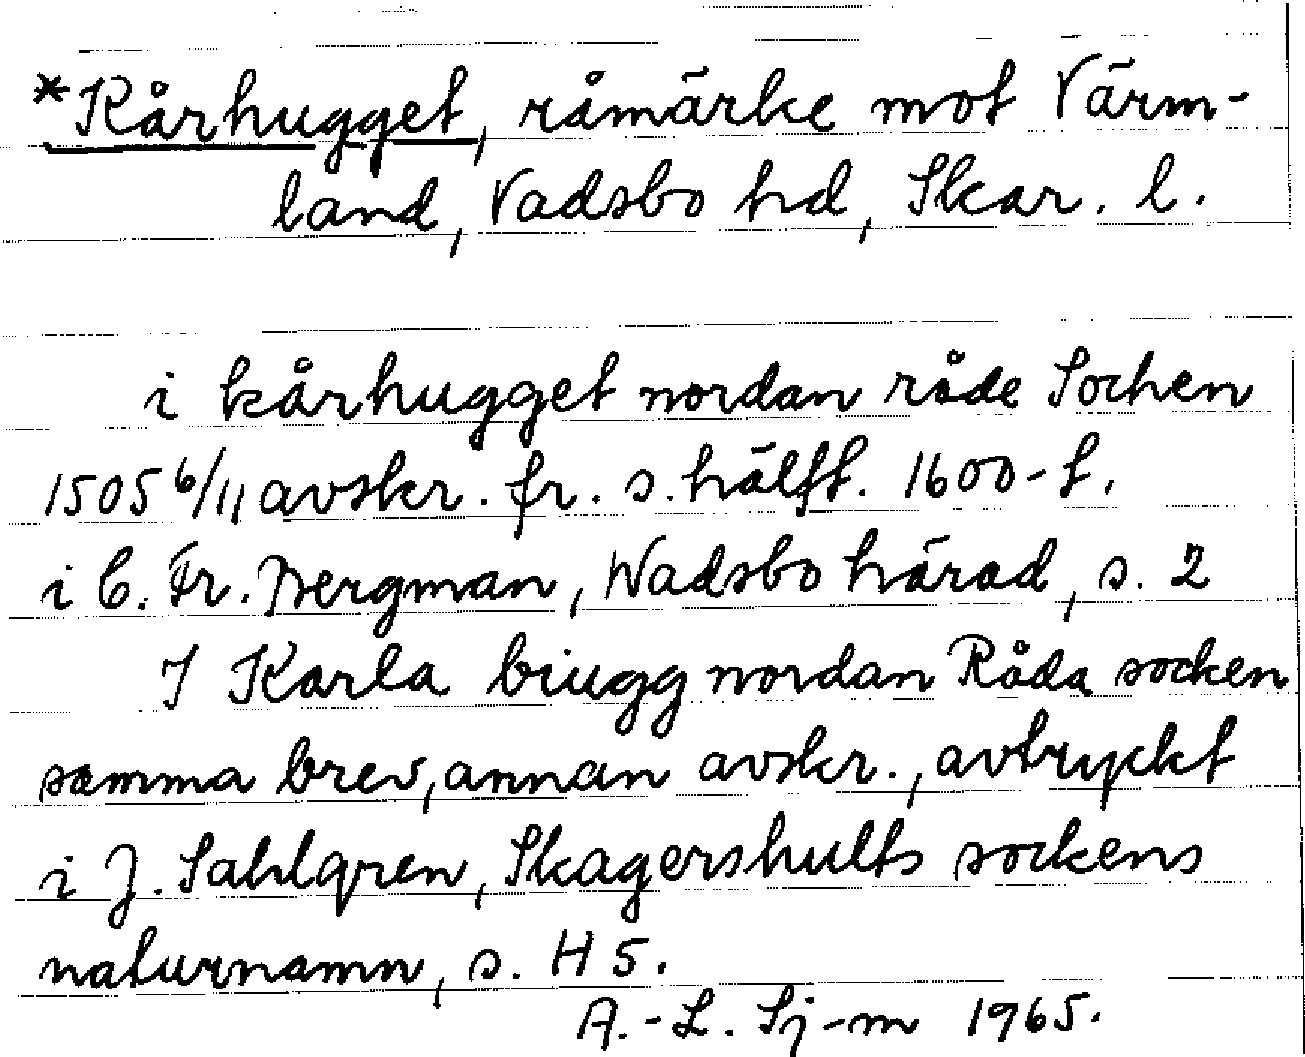 *Kårhugget, råmärke mot Värm-
land, Vadsbo hd, Skar. l.
i kårhugget nordan råde Sochen
1505 6/11 avskr. fr. s. hälft. 1600-t.
i C. Fr. Bergman, Wadsbo härad, s. 2
I Karla biugg nordan Råda socken
samma brev, annan avskr., avtryckt
i J. Sahlgren, Skagershults sockens
naturnamn, s. H 5.
A.-L. Sj-m 1965.